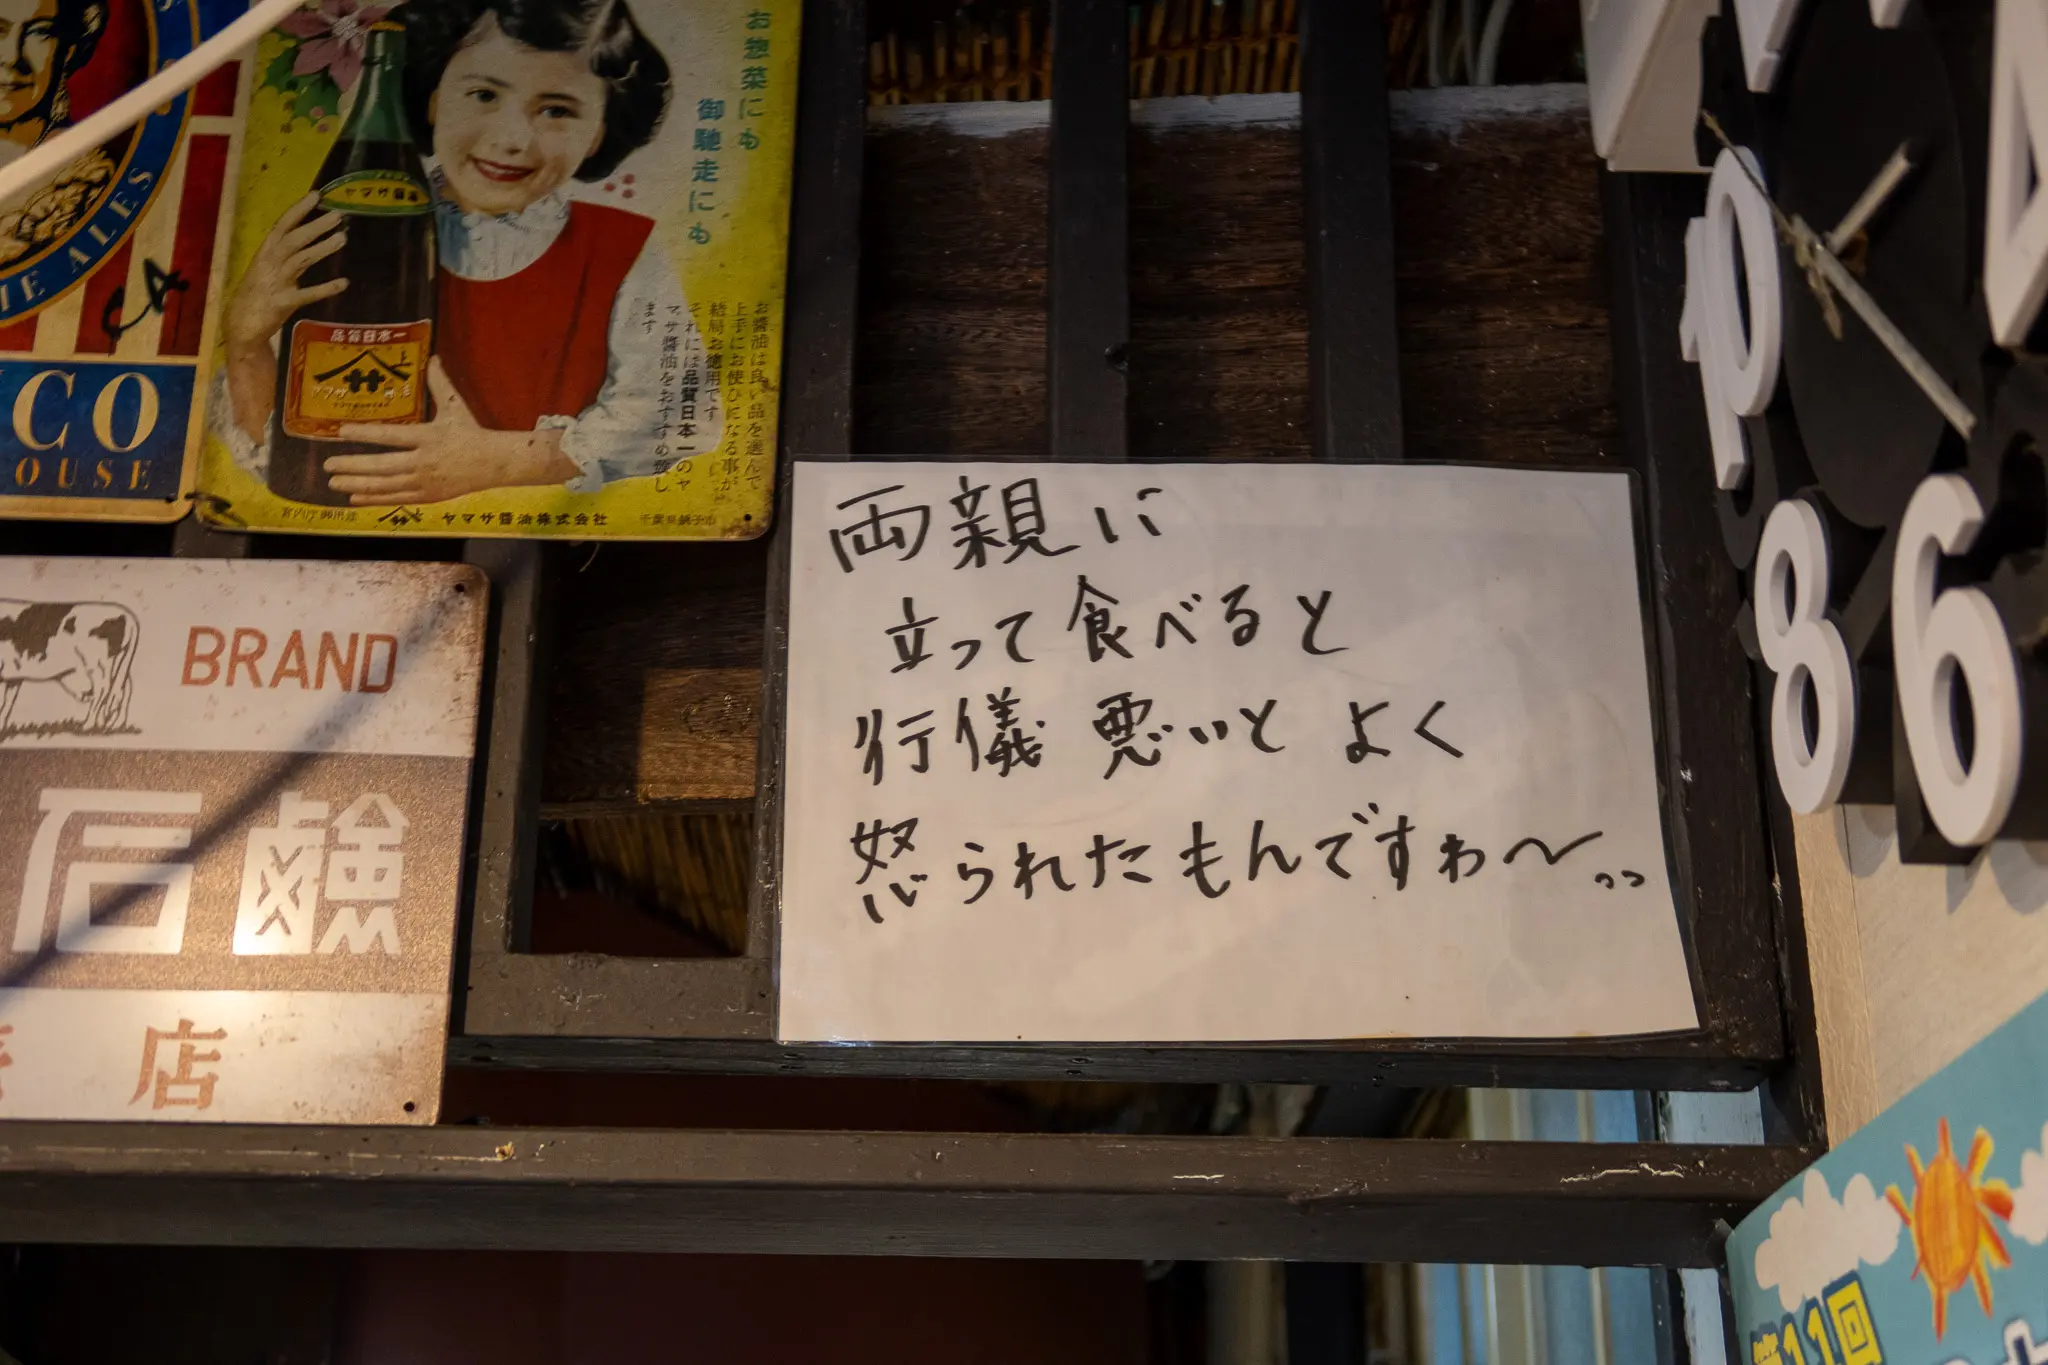 ALES
CA
CO
OUSE
お惣菜にも
御馳走にも
ヤマサ醤油
品質日本一
ヤマサ
お醤油は良い品を選んで
上手にお使ひになる事が
結局お徳用です
それには品質日本一のヤ
マサ醤油をおすすめ致し
ます
宮内庁御用達
ヤマサ醤油株式会社
千葉県銚子市
BRAND
石鹸
店
両親に
立って食べると
行儀悪いと よく
怒られたもんですわ〜。。
10
4
8
6
第11回